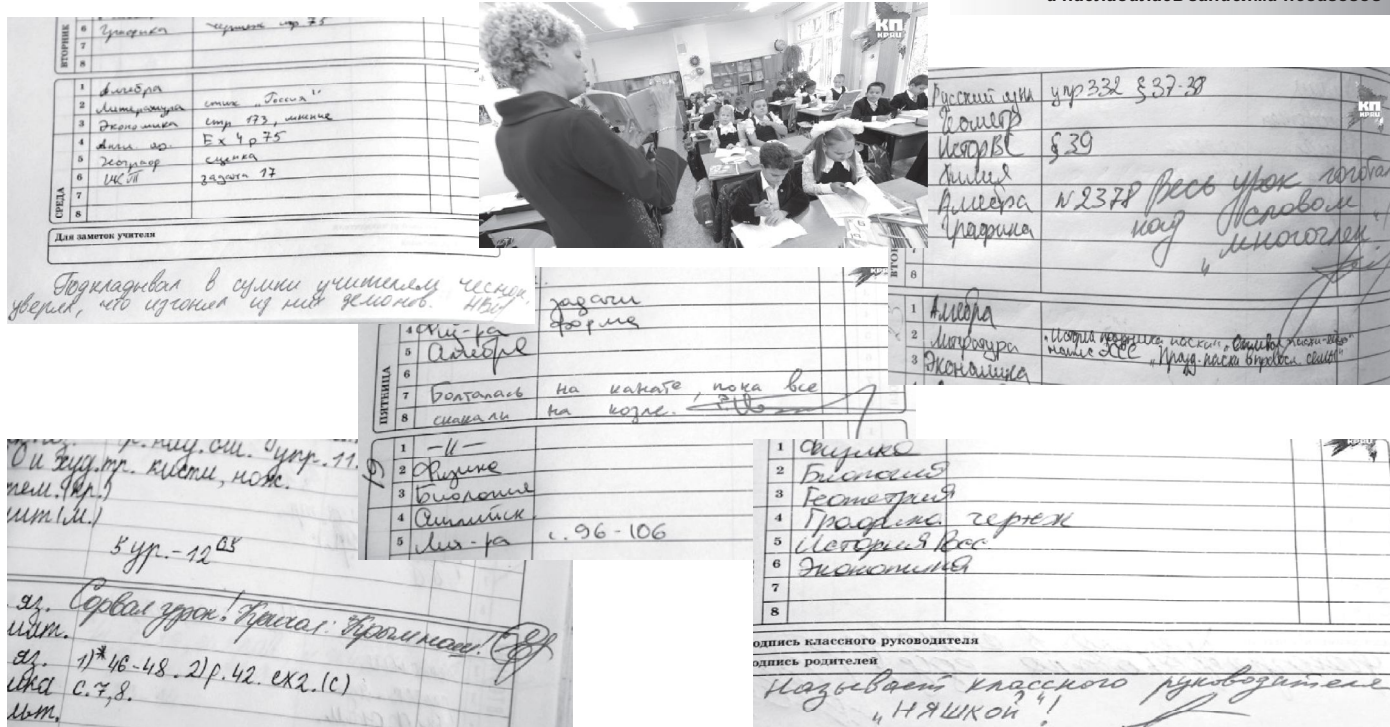 ВТОРНИК
6 Графика чертеж стр. 75
7
8
СРЕДА
1 Алгебра
2 Литература стих „Россия"
3 Экономика стр 173, мнение
4 Англ. яз. Ex 4 p 75
5 Географ сценка
6 задача 17
7
8
Для заметок учителя
Подкладывал в сумки учителям чеснок,
уверял, что изгонял из них демонов.
КП
Русский язык упр 332 § 37-38
Геометр
Истор ВС § 39
Химия
Алгебра N2378
Графика
7
8
Весь урок гоготал
над словом
„многочлен"
1 Алгебра
2 Литература
3 Экономика
ПЯТНИЦА
задачи
4 форма
5 Алгебра
6
7 Болталась на канате, пока все
8 скакали на козле.
19
1 -//-
2 Физика
3 Биология
4 Английск.
5 Лит-ра с. 96-106
кисти, нож.
5 ур. - 12 05
яз. Сорвал урок! Кричал: Крым наш!
яз. 1)*46-48. 2) p. 42. ex2. (c)
с. 7, 8.
КП
1 Физика
2 Биология
3 Геометрия
4 Графика чертеж
5 История Росс
6 Экономика
7
8
одпись классного руководителя
одпись родителей
Называет классного руководителя
„НЯШКОЙ"!